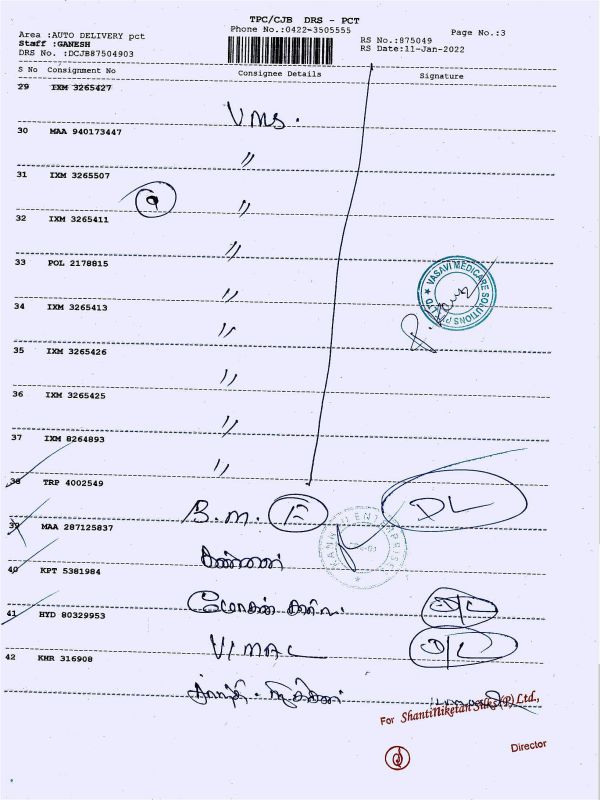 TPC/CJB DRS - PCT
Area :AUTO DELIVERY pct
Phone No.:0422-3505555
Page No.:3
Staff :GANESH
RS No.:875049
DRS No. :DCJB87504903
RS Date:11-Jan-2022
S No Consignment No Consignee Details Signature
29 IXM 3265427
VMS.
30 MAA 940173447
〃
31 IXM 3265507
〃
32 IXM 3265411
〃
33 POL 2178815
〃
VASAVI MEDICARE SOLUTIONS (P) LTD
34 IXM 3265413
〃
35 IXM 3265426
〃
36 IXM 3265425
〃
37 IXM 8264893
〃
38 TRP 4002549
B.M. E DL
39 MAA 287125837
கண்ணன்
40 KPT 5381984
D/L
41 HYD 80329953
VIMAL D/L
42 KHR 316908
For ShantiNiketan Silks (P) Ltd.,
Director